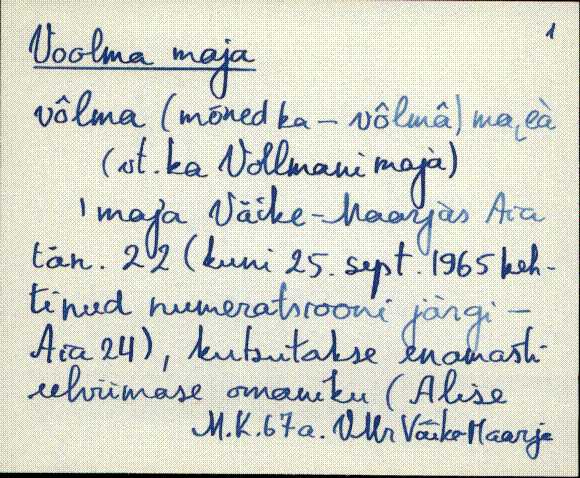 1
Voolma maja
vôlma (mõned ka – vôlmâ) ma͔i̯à
(vt. ka Vollmani maja)
' maja Väike-Maarjas Aia
tän. 22 (kuni 25. sept. 1965 keh-
tinud numeratsiooni järgi –
Aia 24), kutsutakse enamasti
eelviimase omaniku (Alise
M.K. 67a. VMr Väike-Maarja